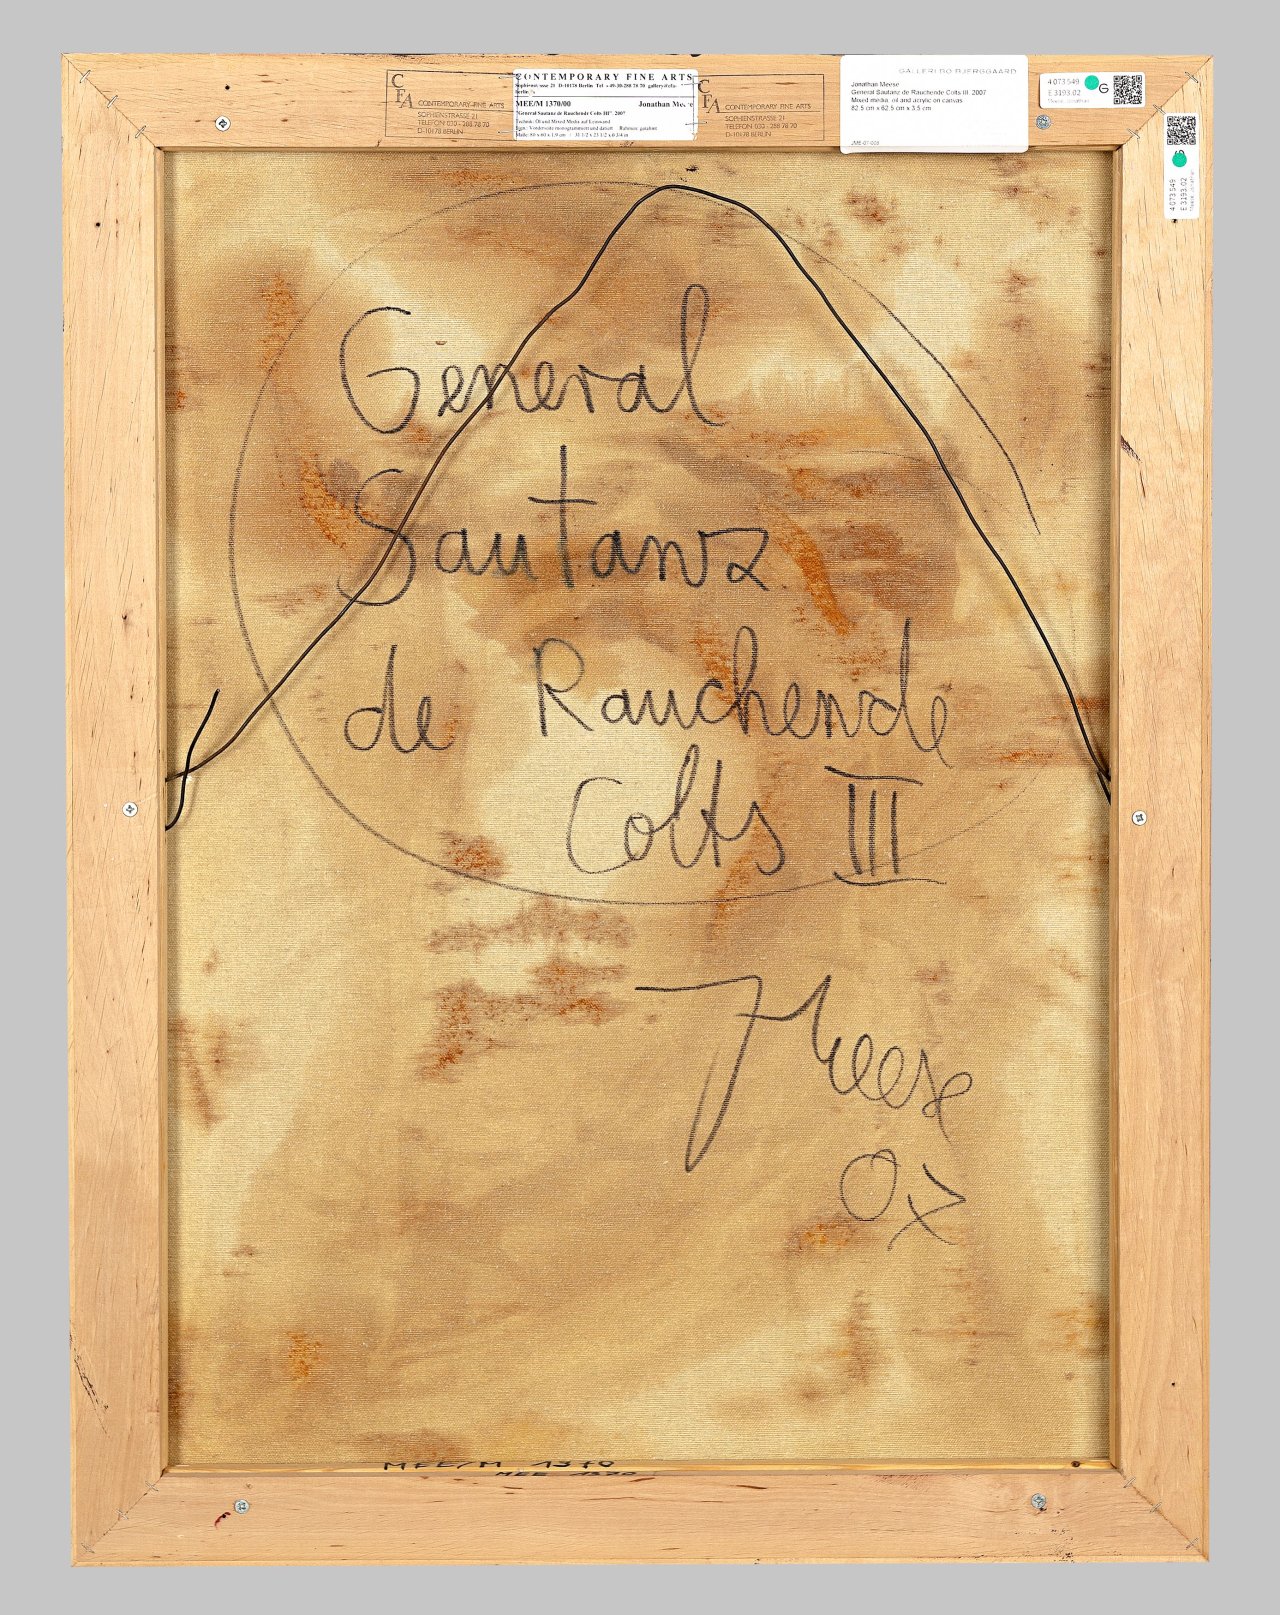 CFA
CONTEMPORARY FINE ARTS
SOPHIENSTRASSE 21
TELEFON 030 - 288 78 70
D-10178 BERLIN
CONTEMPORARY FINE ARTS
Sophienstrasse 21 D-10178 Berlin Tel +49-30-288 78 70
MEE/M 1370/00 Jonathan Meese
"General Sautanz de Rauchende Colts III", 2007
Technik: Öl und Mixed Media auf Leinwand
CFA
CONTEMPORARY FINE ARTS
SOPHIENSTRASSE 21
TELEFON 030 - 288 78 70
D-10178 BERLIN
GALLERI BO BJERGGAARD
Jonathan Meese
General Sautanz de Rauchende Colts III, 2007
Mixed media, oil and acrylic on canvas
82.5 cm x 62.5 cm x 3.5 cm
JME-07-008
4073549
E 3193.02
G
4073549
E 3193.02
General
Sautanz
de Rauchende
Colts III
JMeese
07
MEE/M 1370
MEE 1370